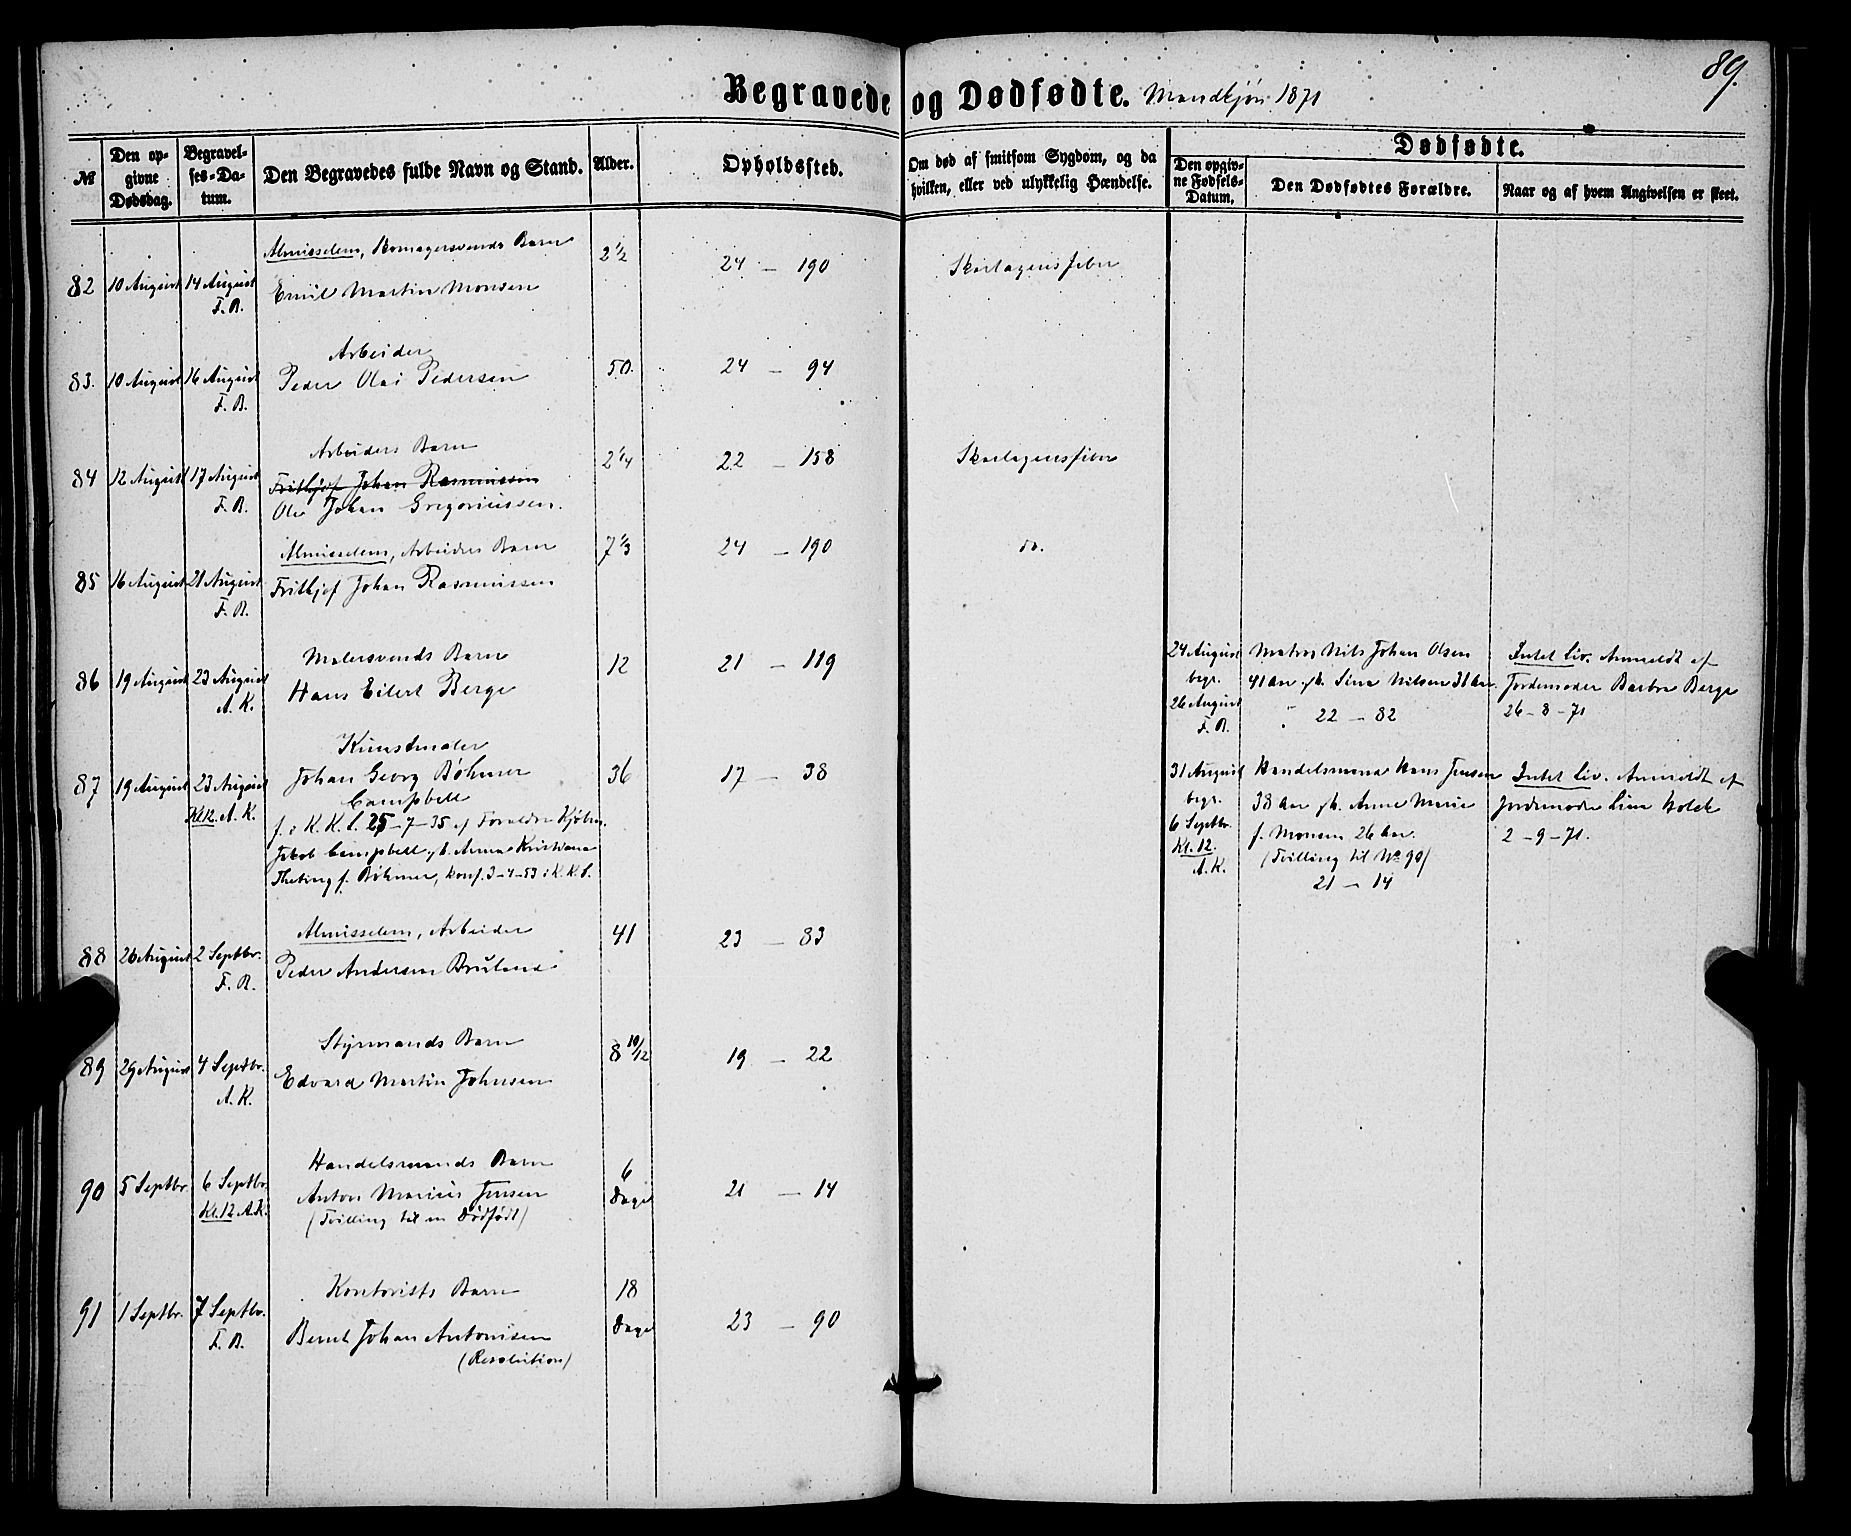 89.
Begravede og Dødfødte. Mandkjøn 1871
№
Den opgivne Dødsdag.
Begravelses-Datum.
Den Begravedes fulde Navn og Stand.
Alder.
Opholdssted.
Om død af smitsom Sygdom, og da hvilken, eller ved ulykkelig Hændelse.
Dødfødte.
Den opgivne Fødsels-Datum.
Den Dødfødtes Forældre.
Naar og af hvem Angivelsen er skeet.
Almisselem, Barn 2½ 24 – 190 Skarlagensfeber
82 10 August 14 August Emil Martin Monsen
F. B.
Arbeider
83. 10 August 16 August Peder Olai Pedersen 50. 24 – 94
F. B.
Arbeiders Barn 2¼ 22 – 158 Skarlagensfeber
84 12 August 17 August Frithjof Johan Rasmussen
F. B. Ole Johan Gregoriussen.
Almisselem, Arbeiders Barn 7⅓ 24 – 190 do.
85 16 August 21 August Frithjof Johan Rasmussen
F. B.
Malersvends Barn 12 21 – 119
86 19 August 23 August Hans Eilert Berge
A. K.
Kunstmaler
87 19 August 23 August Johan Georg Bøhmer 36 17 – 38
Kl. 12. A. K. Campbell
f. i K. K. l. 25–7–35 af Forældre Kjøbm.
Jakob Campbell & Anna Kristiana
Theting f. Bøhmer, konf. 3–4–53 i K. K. l.
Almisselem, Arbeider 41 23 – 83
88 26 August 2 Septbr. Peder Andersen
F. B.
Styrmands Barn 8 10/12 19 – 22
89 29 August 4 Septbr. Edvard Martin Johnsen
A. K.
Handelsmands Barn 6
90 5 Septbr. 6 Septbr. Anton Marius Jensen Dage 21 – 14
Kl. 12 A. K. (Tvilling til en Dødfødt)
Kontorists Barn 18
91 1 Septbr. 7 Septbr. Bernt Johan Antonisen Dage 23 – 90
F. B. (Resolution)
24 August Matros Nils Johan Olsen Intet Liv. Anmeldt af
begr. 41 Aar & h. Sina Nilsen 31 Aar. Jordemoder Barbra Berge
26 August 22 – 82 26–8–71
F. B.
31 August Handelsmand Hans Jensen Intet Liv. Anmeldt af
begr. 38 Aar & h. Anne Marie Jordemoder Lina Holck
6 Septbr. f. Monsen 26 Aar. 2–9–71.
Kl. 12. (Tvilling til No 90)
A. K. 21 – 14